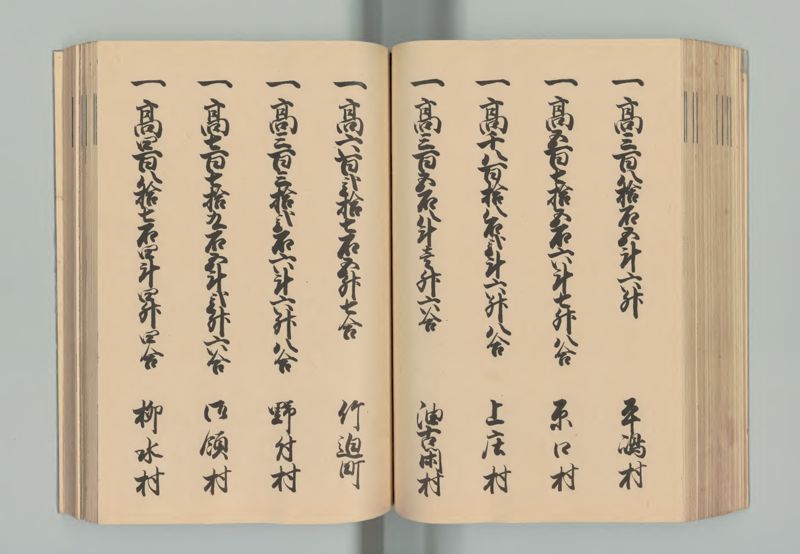 一高三百八拾石五斗六升 平嶋村
一高五百七拾五石六斗七升八合 原口村
一高千八百拾八石弐斗六升八合 上庄村
一高三百五石八斗壱升六合 油古閑村
一高六百弐拾七石五升七合 竹迫町
一高三百三拾弐石六斗六升八合 野付村
一高七百七拾九石五斗弐升六合 御領村
一高四百八拾七石四斗四升四合 柳水村